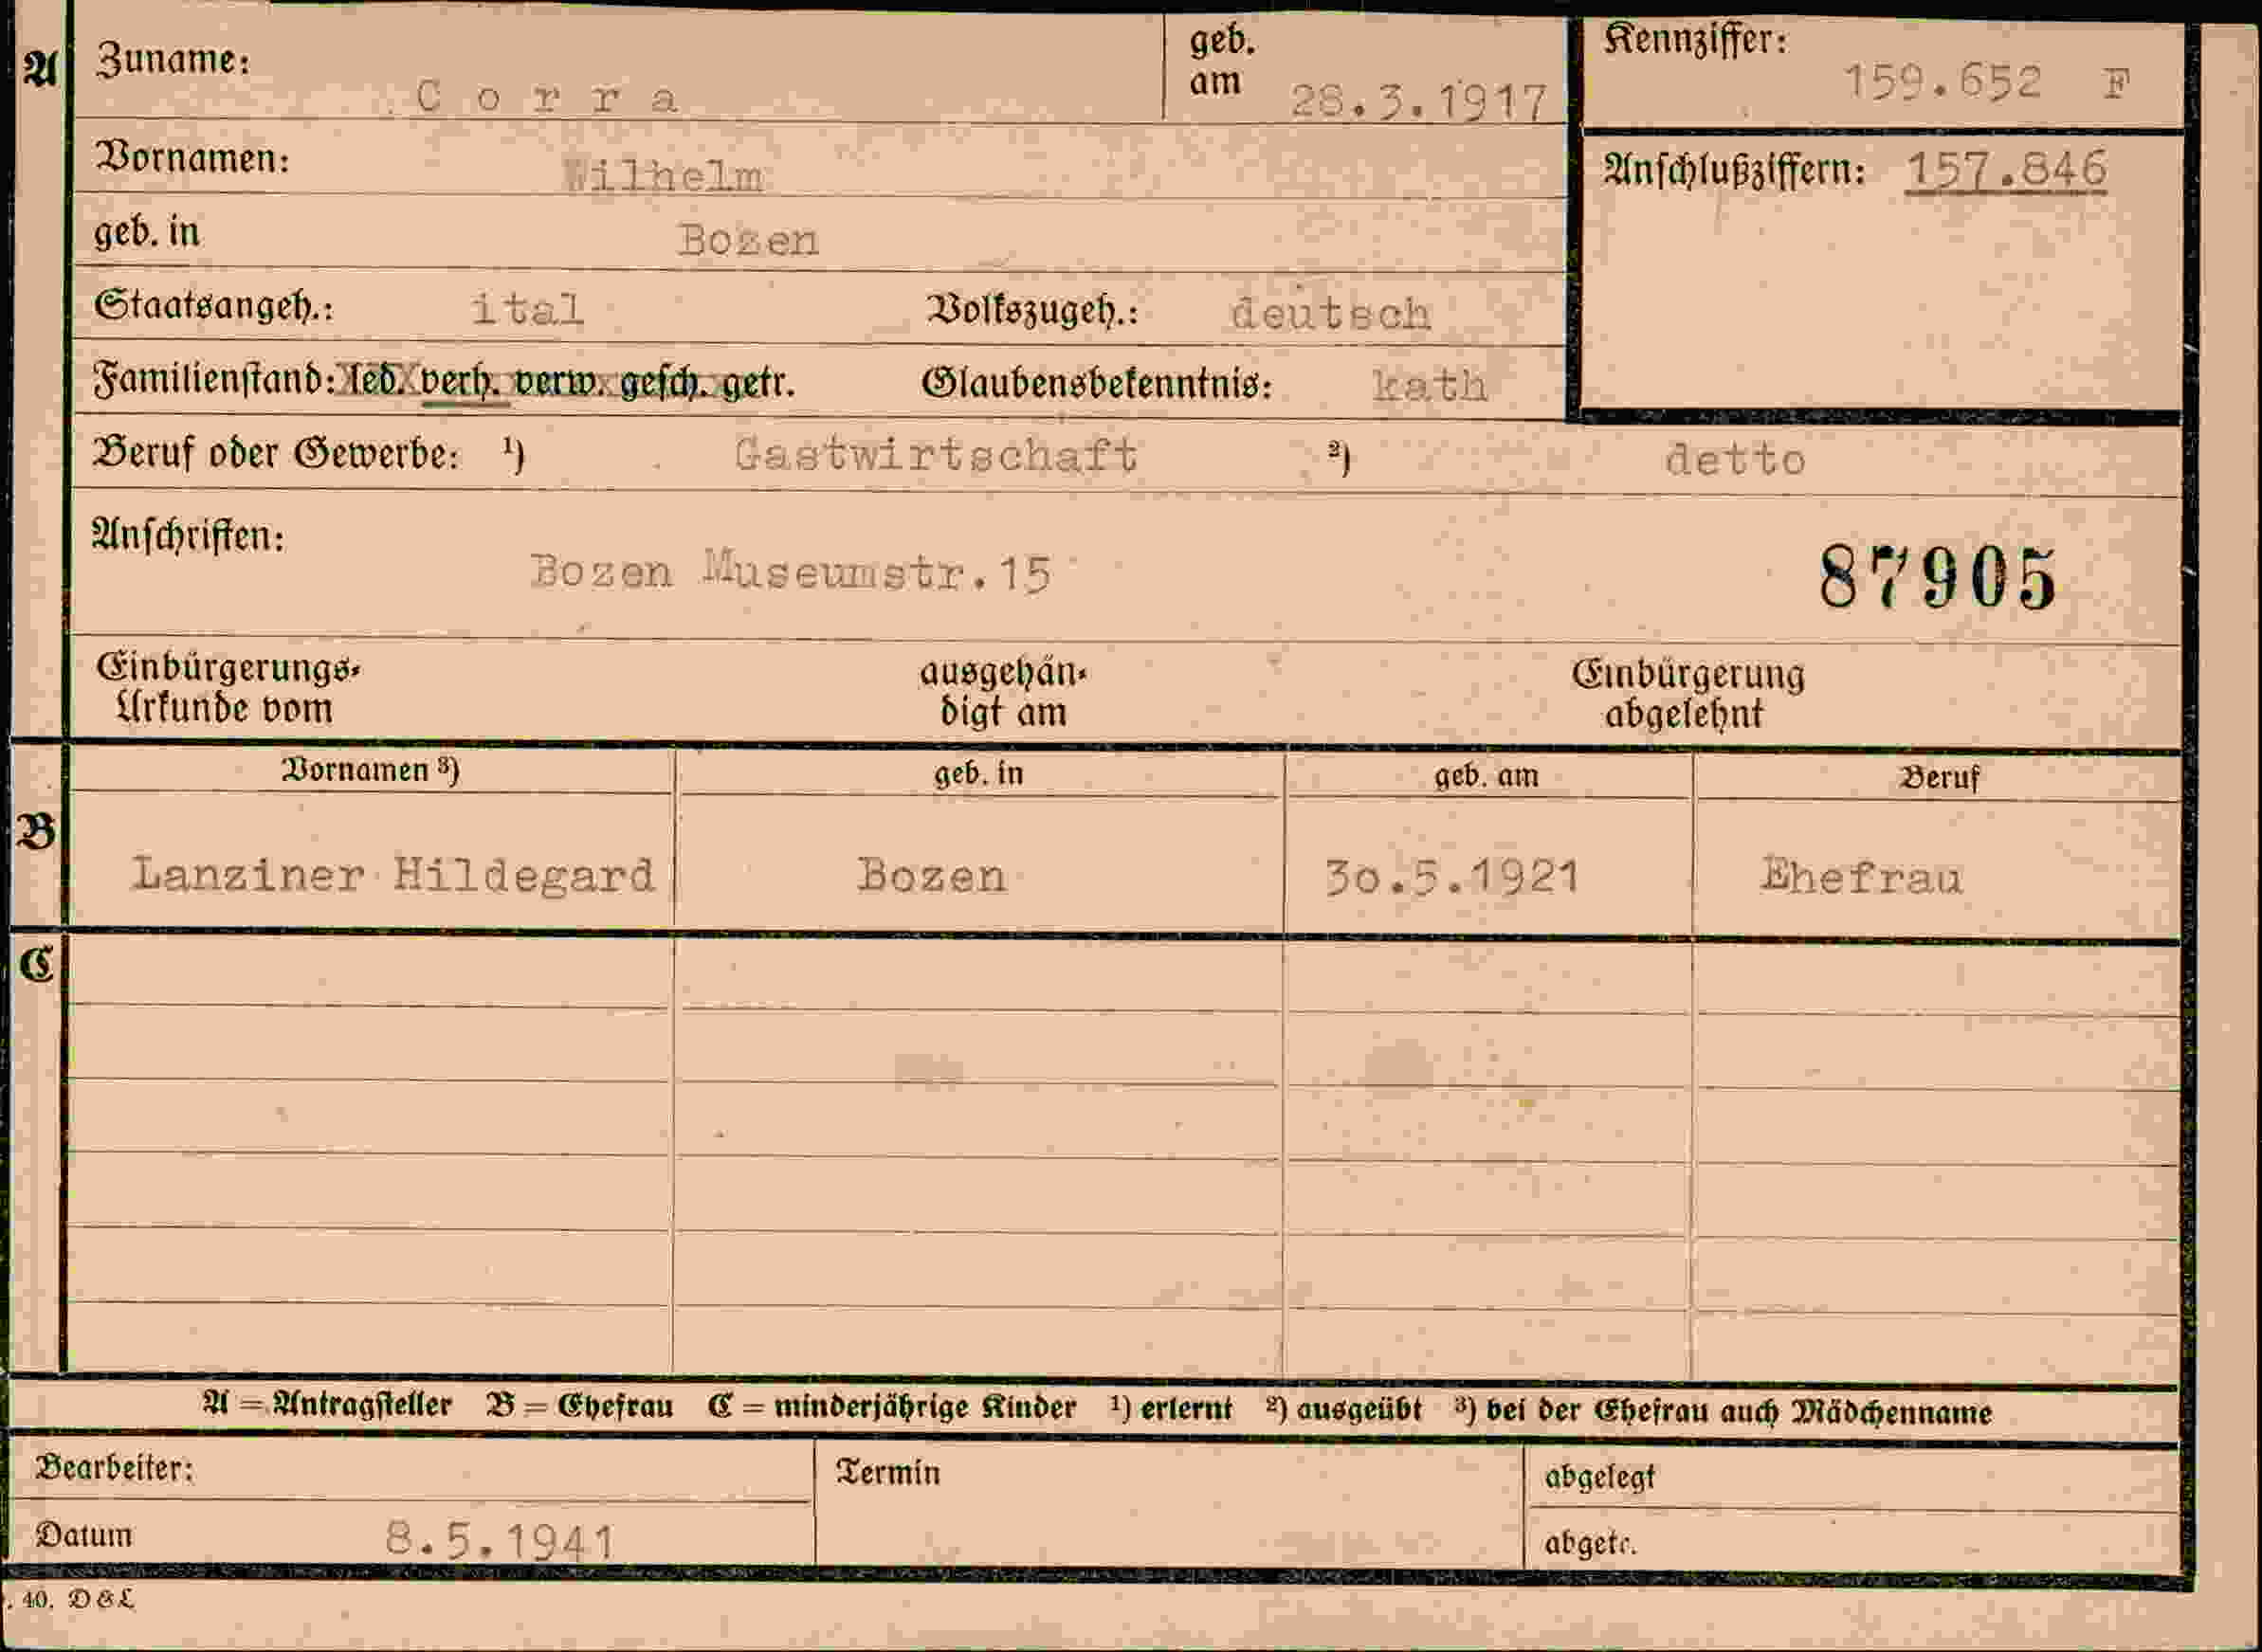 A Zuname: Corra geb. am 28.3.1917 Kennziffer: 159.652 F
Vornamen: Wilhelm Anschlußziffern: 157.846
geb. in Bozen
Staatsangeh.: ital Volkszugeh.: deutsch
Familienstand: led. verh. verw. gesch. getr. Glaubensbekenntnis: kath
Beruf oder Gewerbe: ¹) Gastwirtschaft ²) detto
Anschriften: Bozen Museumstr.15 87905
Einbürgerungs-Urkunde vom ausgehändigt am Einbürgerung abgelehnt
Vornamen ³) geb. in geb. am Beruf
B Lanziner Hildegard Bozen 30.5.1921 Ehefrau
C
A = Antragsteller B = Ehefrau C = minderjährige Kinder ¹) erlernt ²) ausgeübt ³) bei der Ehefrau auch Mädchenname
Bearbeiter: Termin abgelegt
Datum 8.5.1941 abgetr.
. 40. D & L